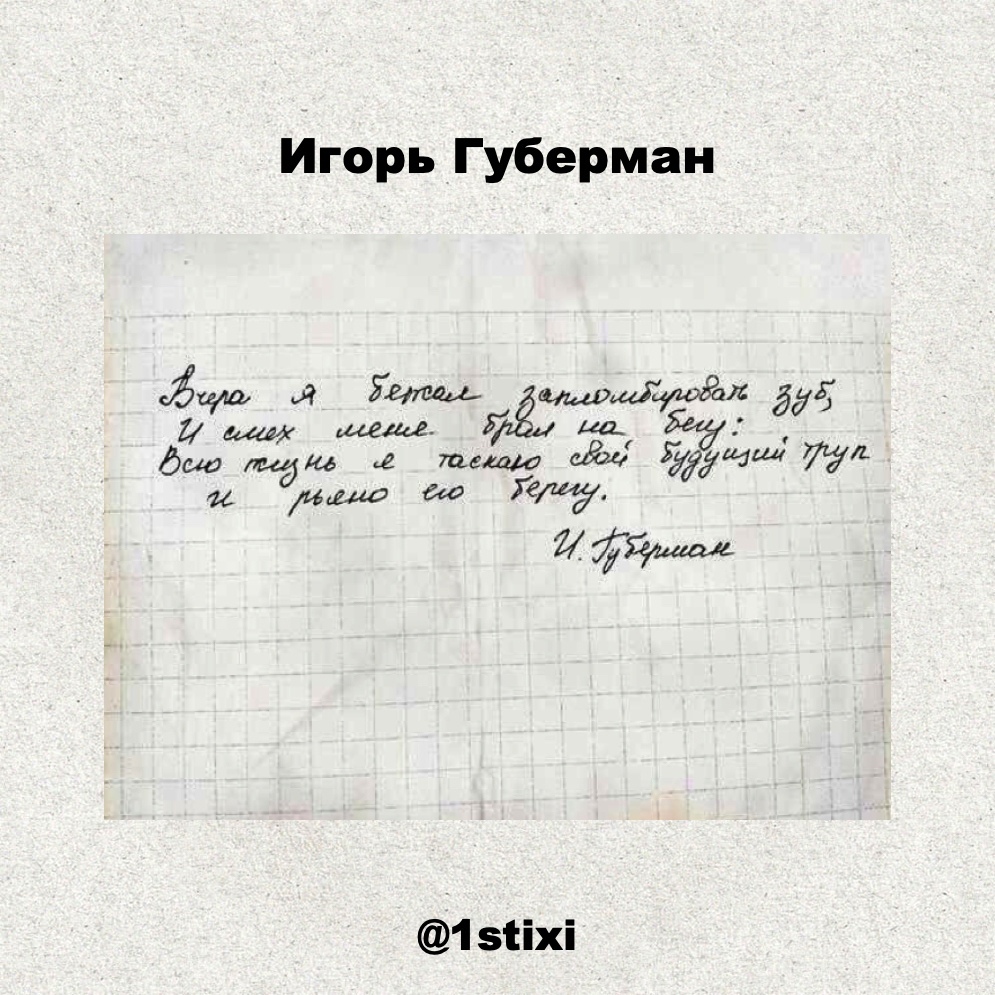 Игорь Губерман
Вчера я бежал запломбировать зуб,
И смех меня брал на бегу:
Всю жизнь я таскаю свой будущий труп
и рьяно его берегу.
И. Губерман
@1stixi